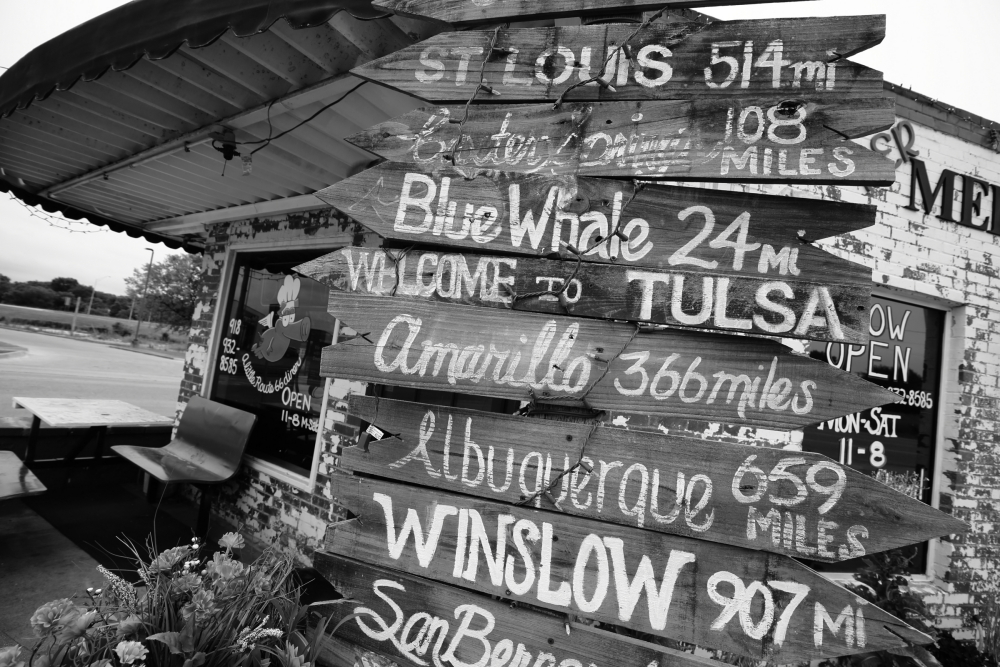 ST LOUIS 514mi
108
MILES
Blue Whale 24 Mi
WELCOME TO TULSA
Amarillo 366miles
Albuquerque 659
MILES
WINSLOW 907 Mi
San Bern
MEL
918
932-
8585
A little Route 66 diner
OPEN
11-8
OW
OPEN
932-8585
MON-SAT
11-8